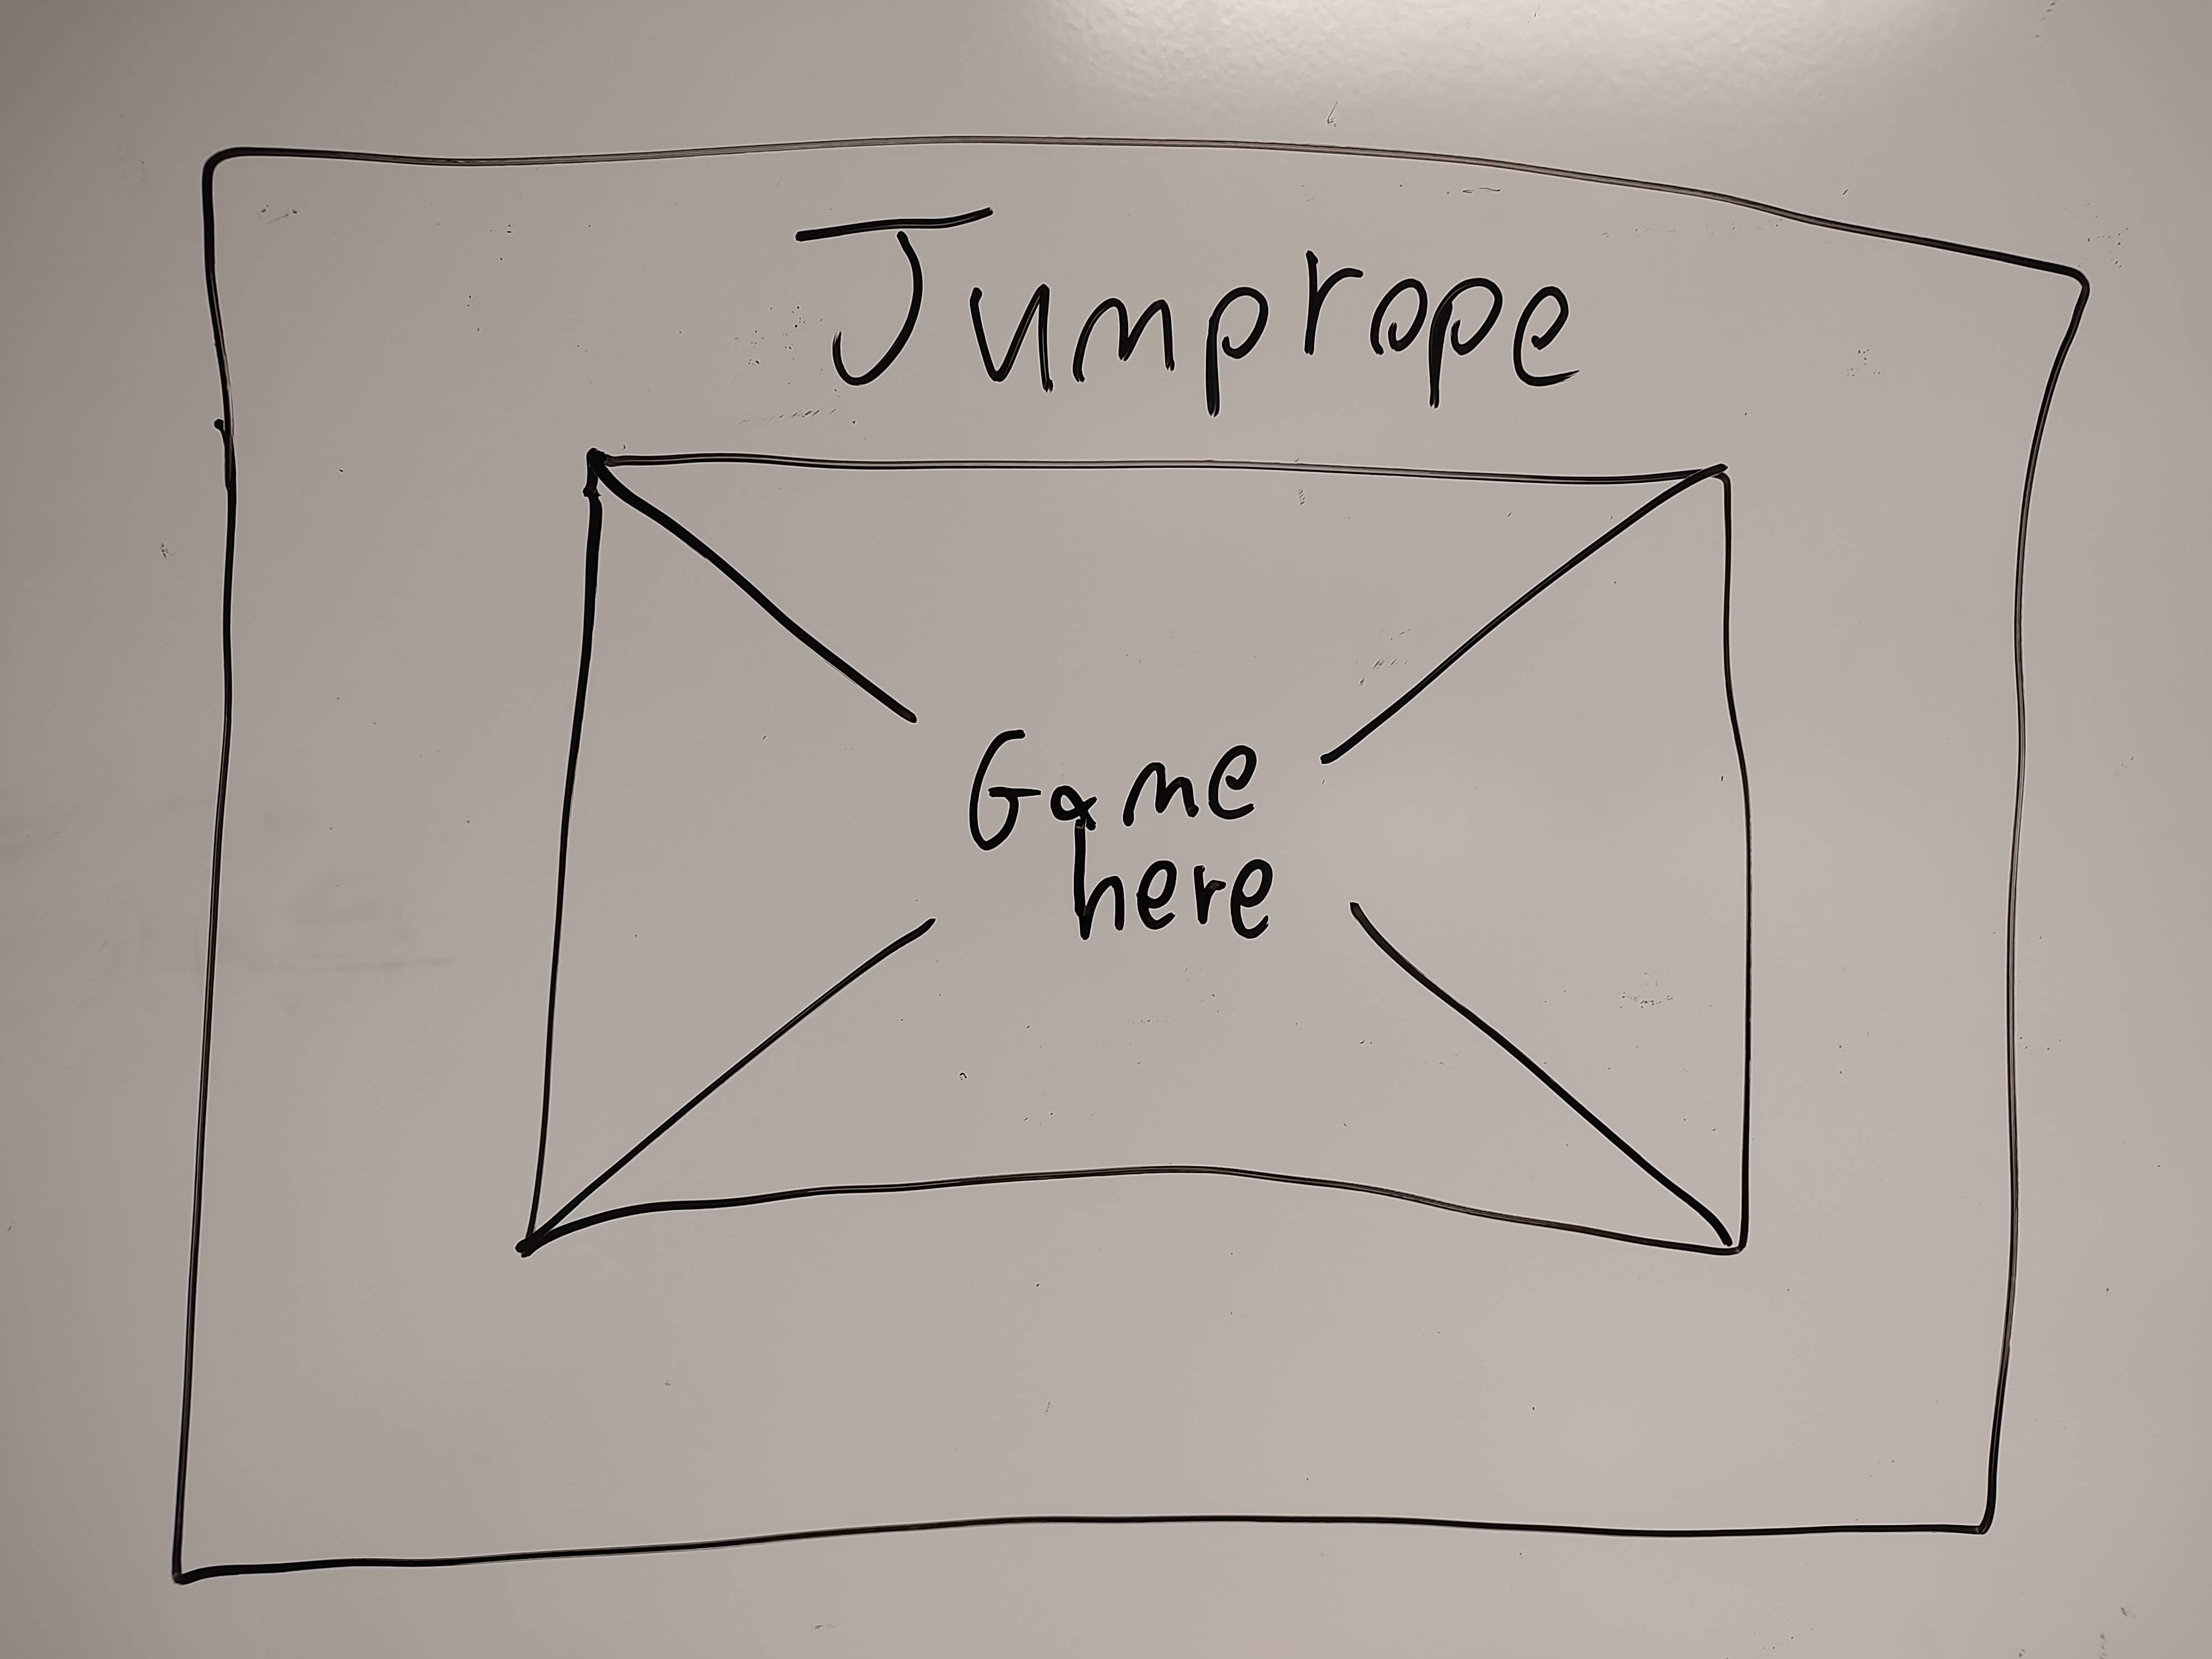 Jumprope
Game
here